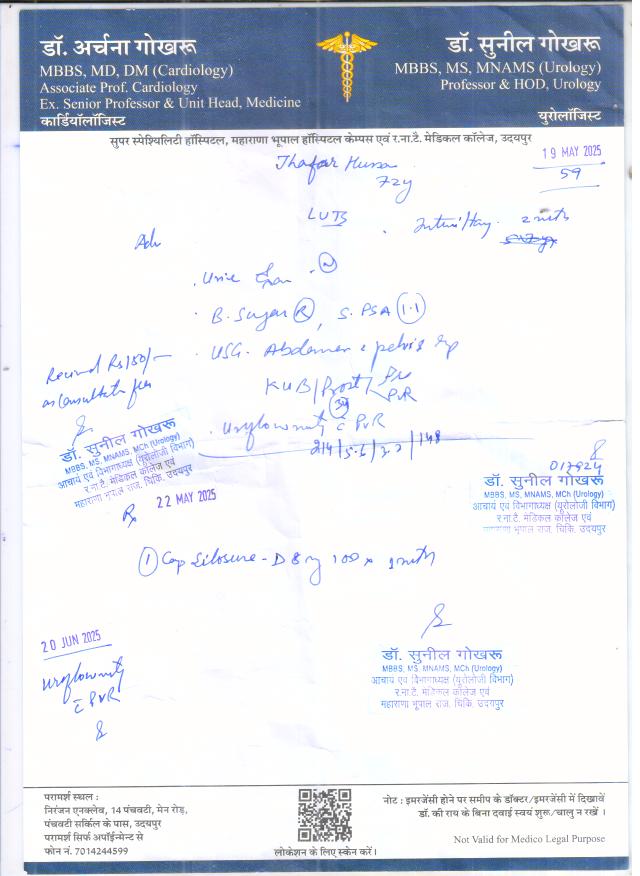 डॉ. अर्चना गोखरू
MBBS, MD, DM (Cardiology)
Associate Prof. Cardiology
Ex. Senior Professor & Unit Head, Medicine
कार्डियॉलॉजिस्ट
डॉ. सुनील गोखरू
MBBS, MS, MNAMS (Urology)
Professor & HOD, Urology
यूरोलॉजिस्ट
सुपर स्पेश्यिलिटी हॉस्पिटल, महाराणा भूपाल हॉस्पिटल केम्पस एवं र.ना.टै. मेडिकल कॉलेज, उदयपुर
19 MAY 2025
59
72y
LUTS
Adv
. Urine
. B. Sugar R, S. PSA 1.1
. USG. Abdomen & pelvis
KUB/Prost/Pre
PVR
. Uroflowmetry c PVR
Received Rs 150/-
as consultation fees
डॉ. सुनील गोखरू
MBBS, MS, MNAMS, MCh (Urology)
आचार्य एवं विभागाध्यक्ष (यूरोलोजी विभाग)
र.ना.टै. मेडिकल कॉलेज एवं
महाराणा भूपाल राज. चिकि. उदयपुर
017824
डॉ. सुनील गोखरू
MBBS, MS, MNAMS, MCh (Urology)
आचार्य एवं विभागाध्यक्ष (यूरोलोजी विभाग)
र.ना.टै. मेडिकल कॉलेज एवं
महाराणा भूपाल राज. चिकि. उदयपुर
Rx 22 MAY 2025
1 Cap Silosure-D 8 mg
20 JUN 2025
Uroflowmetry
c PVR
डॉ. सुनील गोखरू
MBBS, MS, MNAMS, MCh (Urology)
आचार्य एवं विभागाध्यक्ष (यूरोलोजी विभाग)
र.ना.टै. मेडिकल कॉलेज एवं
महाराणा भूपाल राज. चिकि. उदयपुर
परामर्श स्थल :
निरंजन एनक्लेव, 14 पंचवटी, मेन रोड़,
पंचवटी सर्किल के पास, उदयपुर
परामर्श सिर्फ अपॉईन्मेन्ट से
फोन नं. 7014244599
लोकेशन के लिए स्केन करें।
नोट : इमरजेंसी होने पर समीप के डॉक्टर/इमरजेंसी में दिखावें
डॉ. की राय के बिना दवाई स्वयं शुरू/चालु न रखें ।
Not Valid for Medico Legal Purpose